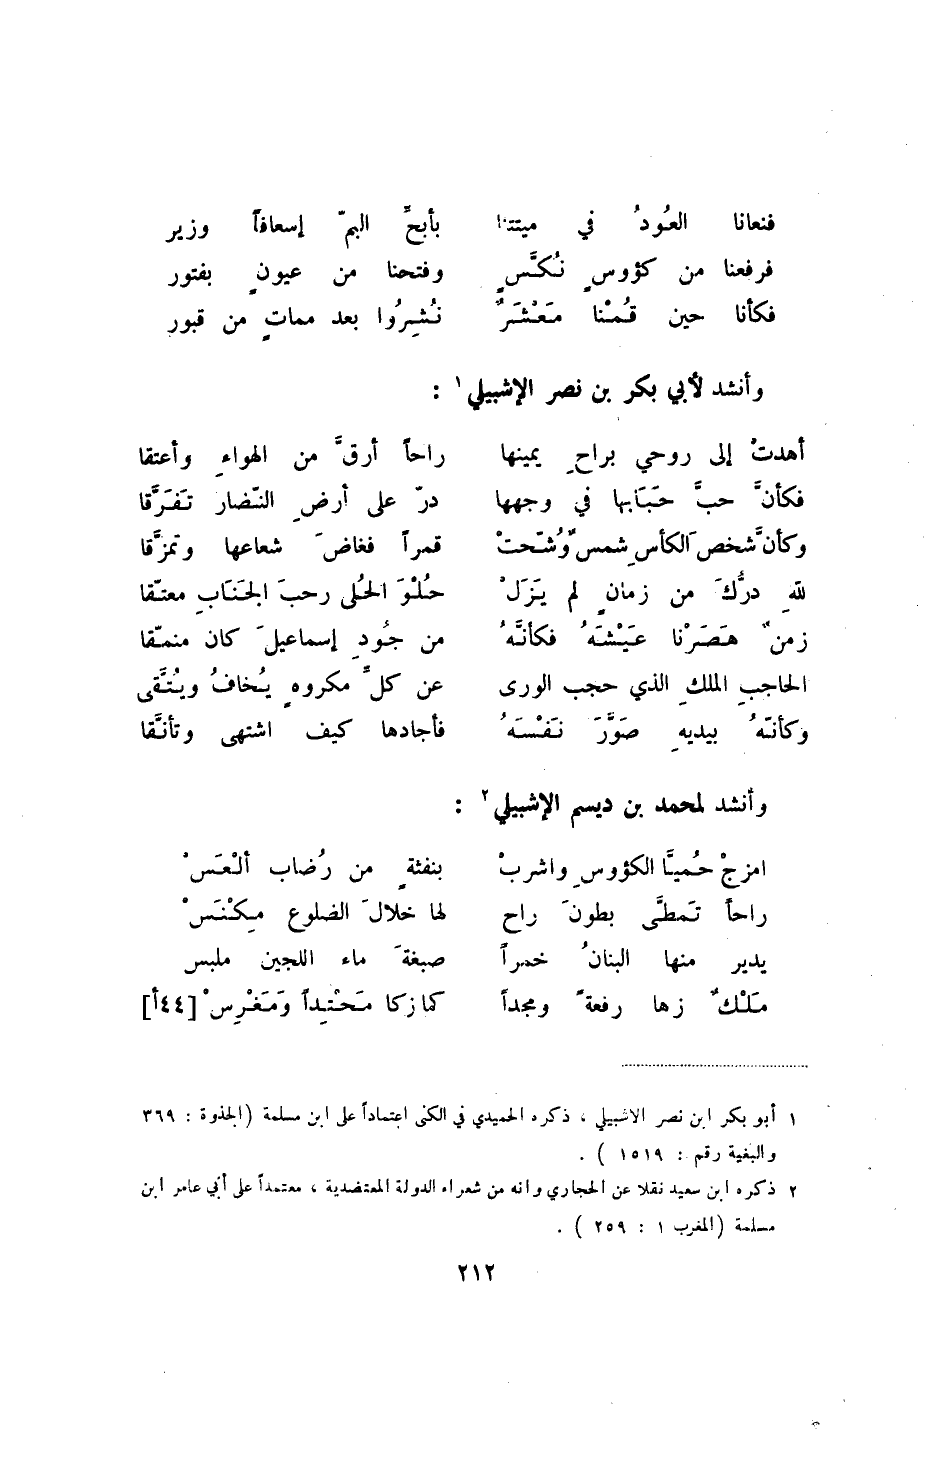 فنعانا العُودُ في ميتتنا بأبحَّ البمّ إسعافاً وزير
فرفعنا من كؤوسٍ نُكَّسٍ وفتحنا من عيونٍ بفتور
فكأنا حين قُمْنا مَعْشَرٌ نُشِرُوا بعد مماتٍ من قبور
وأنشد لأبي بكر بن نصر الإشبيلي ١ :
أهدتْ إلى روحي براحِ يمينها راحاً أرقَّ من الهواءِ وأعتقا
فكأنَّ حبَّ حَبَابها في وجهها درّ على أرضِ النّضار تَفَرَّقا
وكأنَّ شخصَ الكأسِ شمسٌ وُشّحتْ قمراً ففاضَ شعاعها وتمزَّقا
للهِ درُّكَ من زمانٍ لم يَزَلْ حُلْوَ الحُلى رحبَ الجَنَابِ معتّقا
زمنٌ هَصَرْنا عَيْشَهُ فكأنَّهُ من جُودِ إسماعيلَ كان منمّقا
الحاجبِ الملكِ الذي حجب الورى عن كلِّ مكروهٍ يُخافُ ويُتَّقى
وكأنّهُ بيديهِ صَوَّرَ نَفْسَهُ فأجادها كيف اشتهى وتأنَّقا
وأنشد لمحمد بن ديسم الإشبيلي ٢ :
امزجْ حُميَّا الكؤوسِ واشربْ بنفثةٍ من رُضاب ألْعَسْ
راحاً تَمطَّى بطونَ راح لها خلالَ الضلوع مِكْنَسْ
يدير منها البنانُ خمراً صبغةَ ماء اللجين ملبس
مَلْكٌ زها رفعةً ومجداً كما زكا مَحْتِداً وَمَغْرِسْ [٤٤أ]
١ أبو بكر ابن نصر الاشبيلي ، ذكره الحميدي في الكنى اعتماداً على ابن مسلمة (الجذوة : ٣٦٩
والبغية رقم : ١٥١٩ ) .
٢ ذكره ابن سعيد نقلا عن الحجاري وانه من شعراء الدولة المعتضدية ، معتمداً على أبي عامر ابن
مسلمة (المغرب ١ : ٢٥٩ ) .
٢١٢